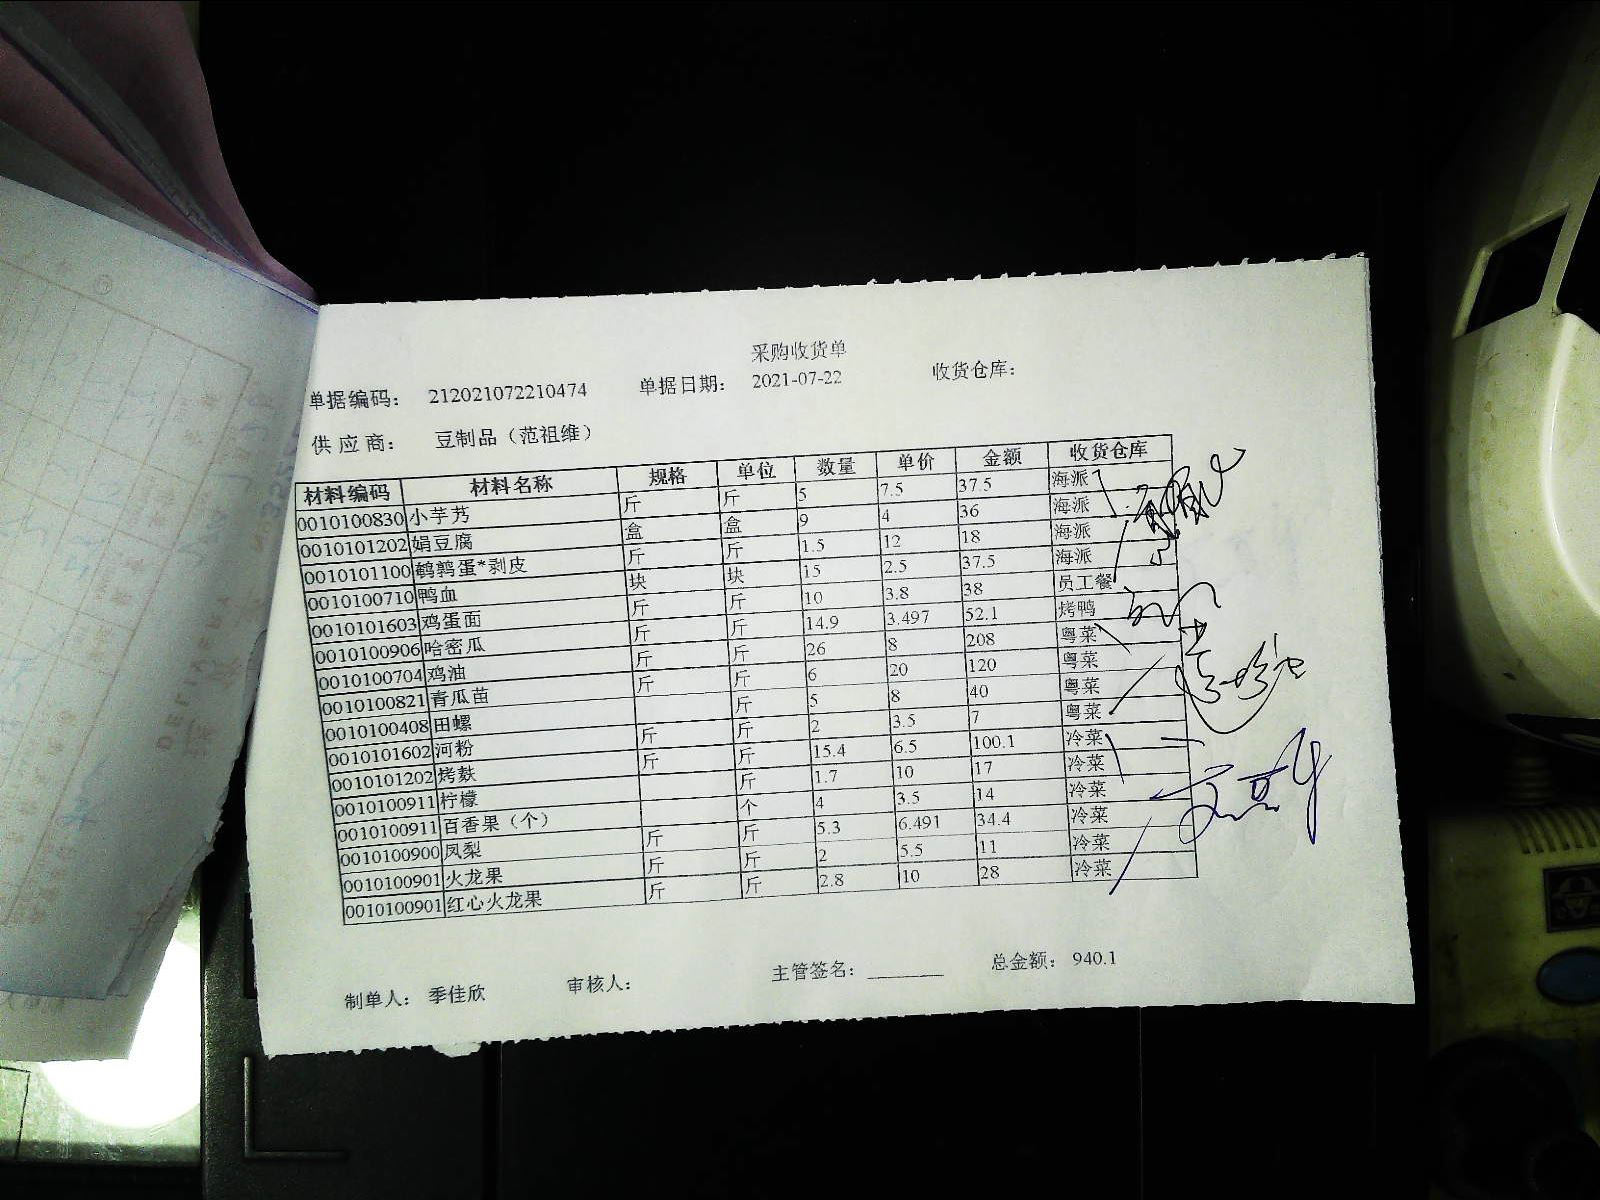 采购收货单
单据编码： 212021072210474 单据日期： 2021-07-22 收货仓库：
供 应 商： 豆制品（范祖维）
材料编码 材料名称 规格 单位 数量 单价 金额 收货仓库
0010100830 小芋艿 斤 斤 5 7.5 37.5 海派
0010101202 娟豆腐 盒 盒 9 4 36 海派
0010101100 鹌鹑蛋*剥皮 斤 斤 1.5 12 18 海派
0010100710 鸭血 块 块 15 2.5 37.5 海派
0010101603 鸡蛋面 斤 斤 10 3.8 38 员工餐
0010100906 哈密瓜 斤 斤 14.9 3.497 52.1 烤鸭
0010100704 鸡油 斤 斤 26 8 208 粤菜
0010100821 青瓜苗 斤 斤 6 20 120 粤菜
0010100408 田螺 斤 5 8 40 粤菜
0010101602 河粉 斤 斤 2 3.5 7 粤菜
0010101202 烤麸 斤 斤 15.4 6.5 100.1 冷菜
0010100911 柠檬 斤 1.7 10 17 冷菜
0010100911 百香果（个） 个 4 3.5 14 冷菜
0010100900 凤梨 斤 斤 5.3 6.491 34.4 冷菜
0010100901 火龙果 斤 斤 2 5.5 11 冷菜
0010100901 红心火龙果 斤 斤 2.8 10 28 冷菜
制单人： 季佳欣 审核人： 主管签名： 总金额： 940.1